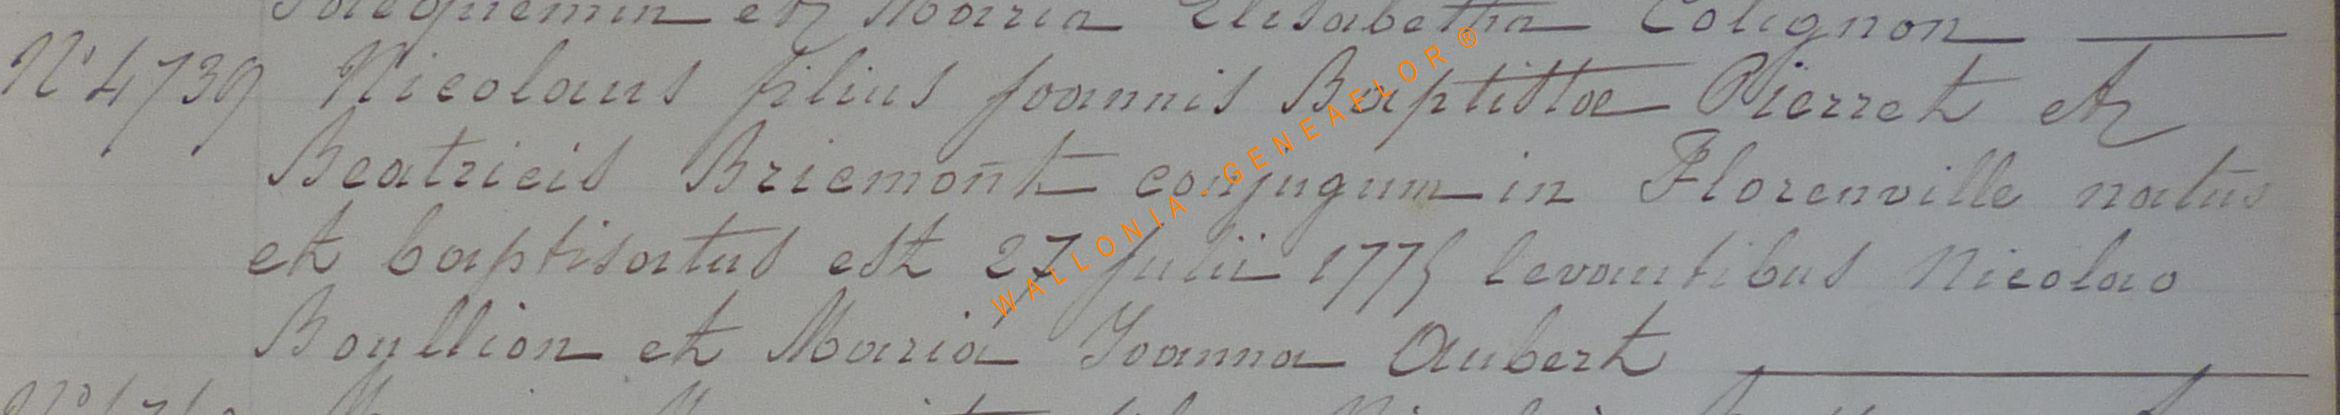 Jacquemin et Maria Elisabetha Colignon
N° 4739 Nicolaus filius Joannis Baptistæ Pierret et
Beatricis Briemont conjugum in Florenville natus
et baptisatus est 27 Julii 1775 levantibus Nicolao
Boullion et Maria Joanna Aubert
WALLONIA GENEAFLOR ®